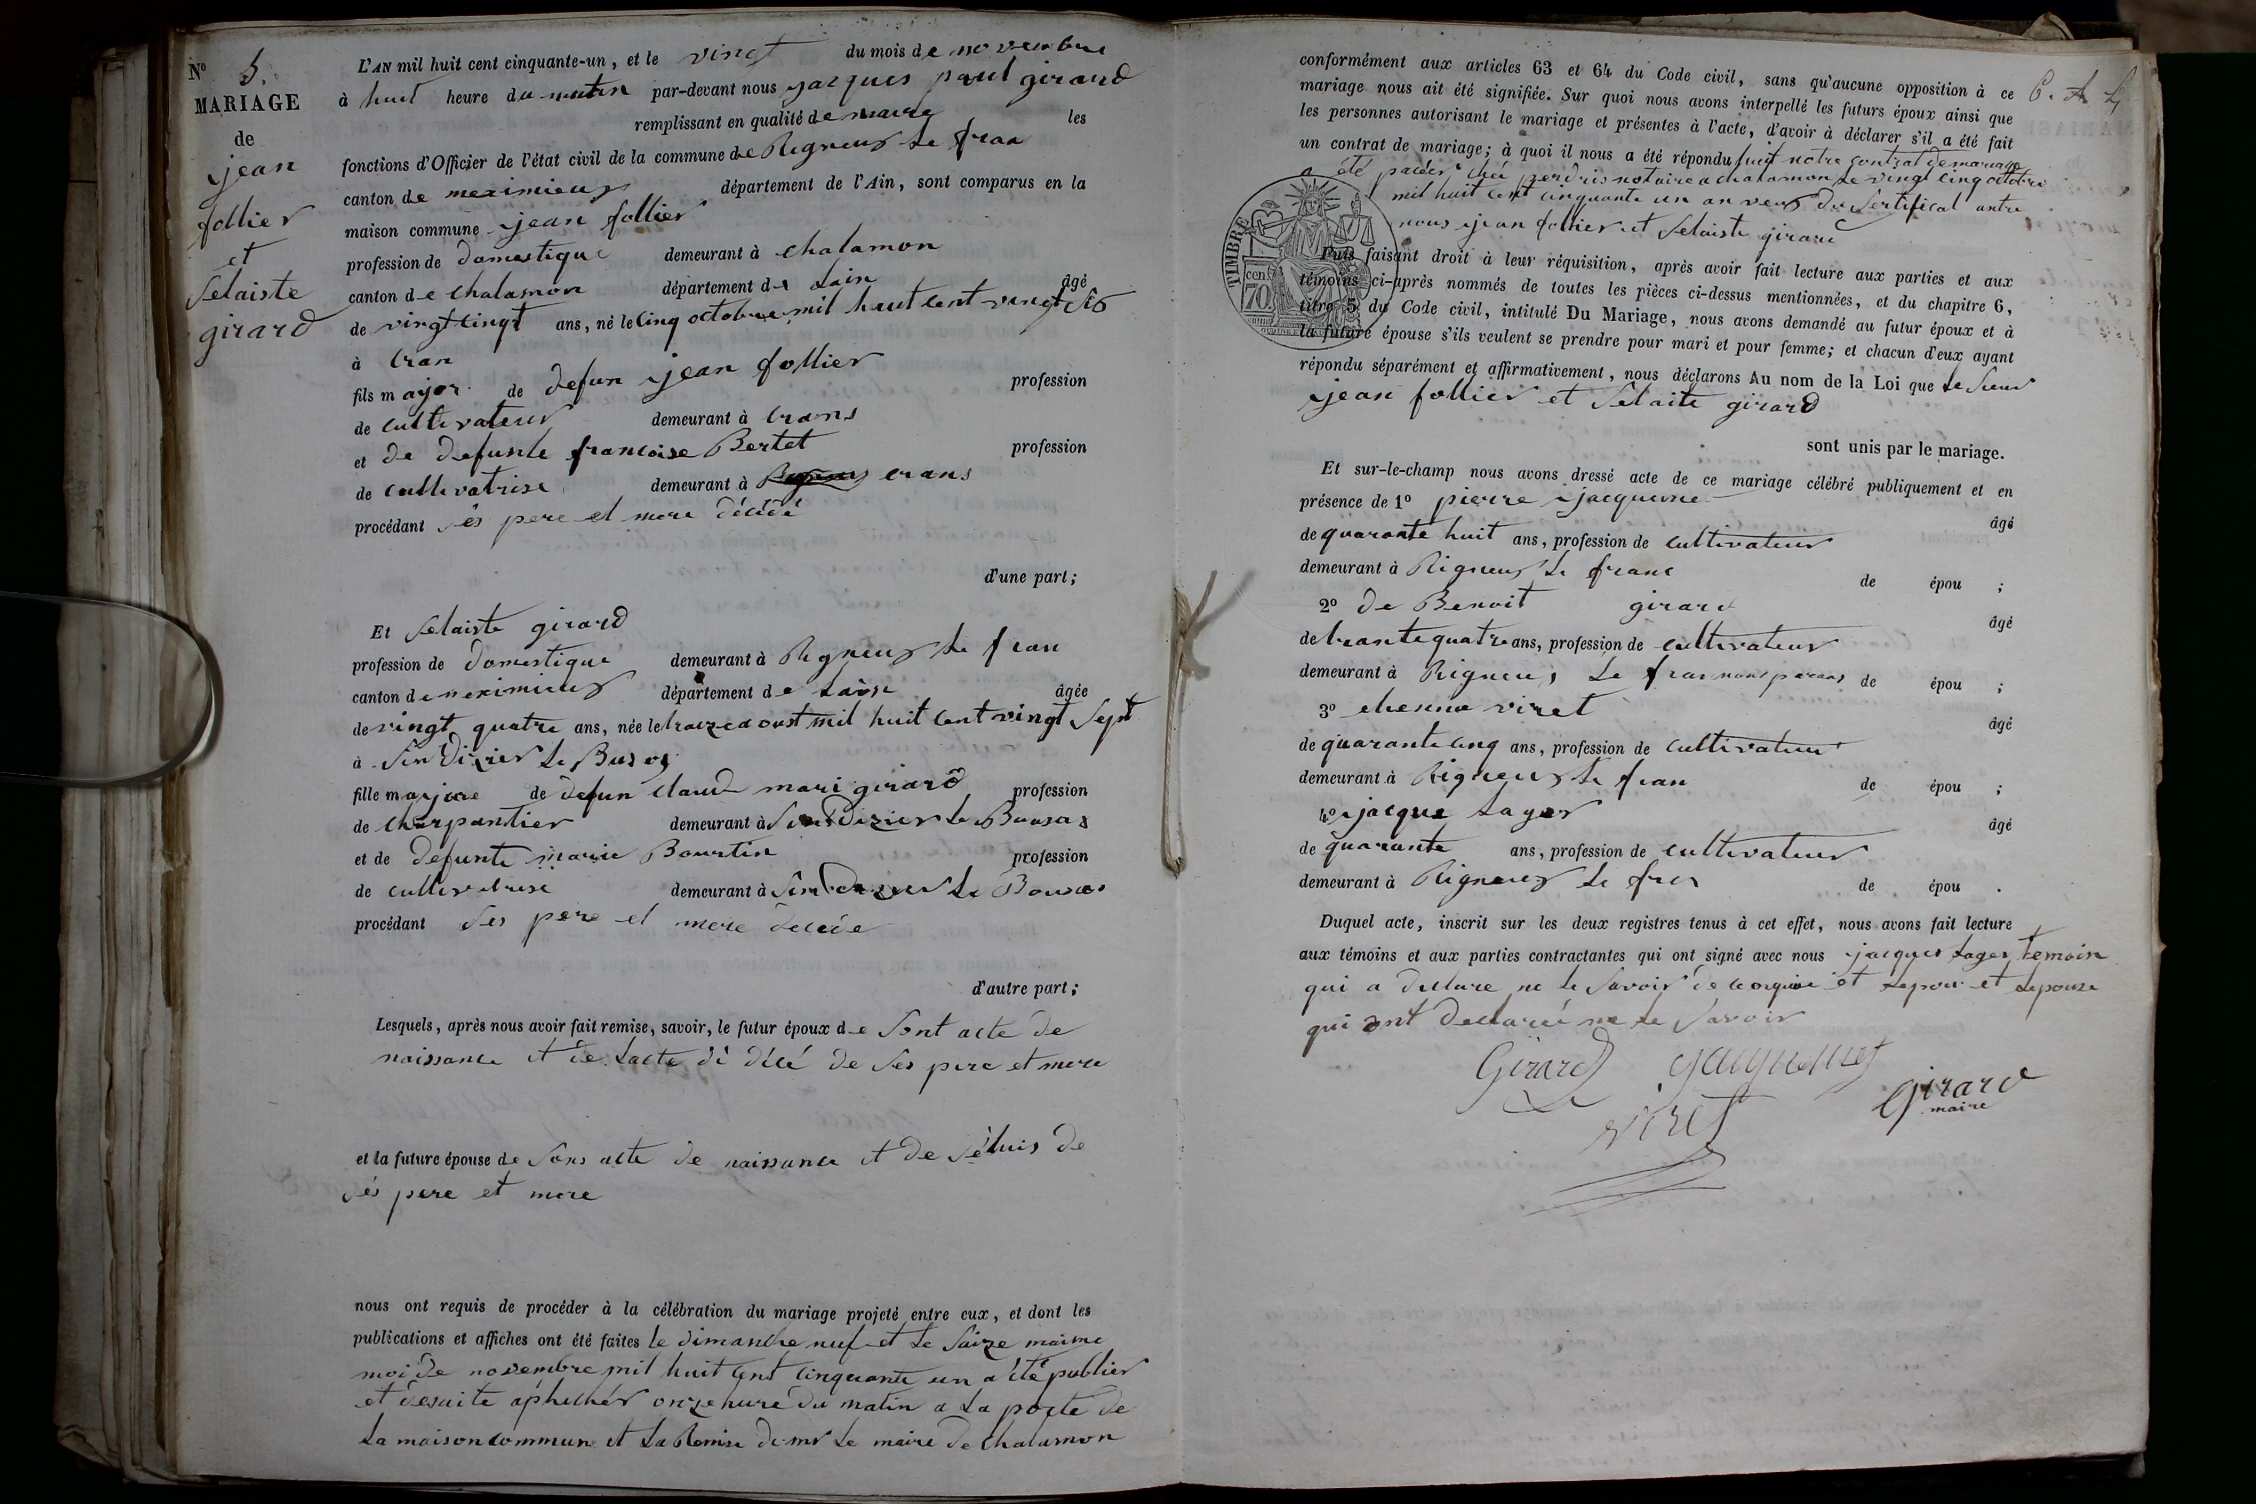 N° 5.
MARIAGE
de
jean
follier
et
Selaiste
girard
L'AN mil huit cent cinquante-un, et le vingt du mois de novembre
à huit heure du matin par-devant nous jacques paul girard
remplissant en qualité de maire les
fonctions d'Officier de l'état civil de la commune de Rigneux le fran
canton de meximieux département de l'Ain, sont comparus en la
maison commune jean follier
profession de domestique demeurant à chalamon
canton de chalamon département de Lain âgé
de vingt cinqt ans, né le cinq octobre mil huit cent vingt sis
à cran
fils major de defun jean follier profession
de cultivateur demeurant à crans
et de defunte francoise Bertet profession
de cultivatrise demeurant à crans
procédant sês pere et mere décédé
d'une part;
Et Selaiste girard
profession de domestique demeurant à Rigneux le fran
canton de meximieux département de Lain âgée
de vingt quatre ans, née le traize aoust mil huit cent vingt sept
à
fille marjore de defun claude mari girard profession
de charpantier demeurant à
et de defunte marie Bourtin profession
de cultivatrise demeurant à
procédant ses pere et mere décéde
d'autre part;
Lesquels, après nous avoir fait remise, savoir, le futur époux de sont acte de
naissance et de Lacte dé décé de ses pere et mere
et la future épouse de sons acte de naissance et de séluis de
sés pere et mere
nous ont requis de procéder à la célébration du mariage projeté entre eux, et dont les
publications et affiches ont été faites le dimanche nuf et le saize maime
moi de novembre mil huit cent cinquante un a été publier
et desuite aphicher onze hure du matin a la porte de
la maison commune et la Remise de mr le maire de chalamon
conformément aux articles 63 et 64 du Code civil, sans qu'aucune opposition à ce
mariage nous ait été signifiée. Sur quoi nous avons interpellé les futurs époux ainsi que
les personnes autorisant le mariage et présentes à l'acte, d'avoir à déclarer s'il a été fait
un contrat de mariage; à quoi il nous a été répondu notre contrat de mariage
a été passer chez perdrix notaire a chalamon le vingt cinq octobre
mil huit cent cinquante un an veus du sertifical antre
nous jean follier et selaiste girard
TIMBRE
70 cen
Puis faisant droit à leur réquisition, après avoir fait lecture aux parties et aux
témoins ci-après nommés de toutes les pièces ci-dessus mentionnées, et du chapitre 6,
titre 5 du Code civil, intitulé Du Mariage, nous avons demandé au futur époux et à
la future épouse s'ils veulent se prendre pour mari et pour femme; et chacun d'eux ayant
répondu séparément et affirmativement, nous déclarons Au nom de la Loi que le sieur
jean follier et Selaite girard
sont unis par le mariage.
Et sur-le-champ nous avons dressé acte de ce mariage célébré publiquement et en
présence de 1° pierre jacquemet
âgé
de quarante huit ans, profession de cultivateur
demeurant à Rigneux le franc de épou ;
2° de Benoit girard
âgé
de trante quatre ans, profession de cultivateur
demeurant à Rigneux Le fran de épou ;
3° etienne viret
âgé
de quarante cinq ans, profession de cultivateur
demeurant à Rigneux le fran de épou ;
4° jacque Lager
âgé
de quarante ans, profession de cultivateur
demeurant à Rigneux le fran de épou .
Duquel acte, inscrit sur les deux registres tenus à cet effet, nous avons fait lecture
aux témoins et aux parties contractantes qui ont signé avec nous jacques Lager temoin
qui a declare ne le savoir de ce requie et Lepoux et Lepouse
qui ont declaréé ne le savoir
Girard jacquemet
viret
Girard
maire